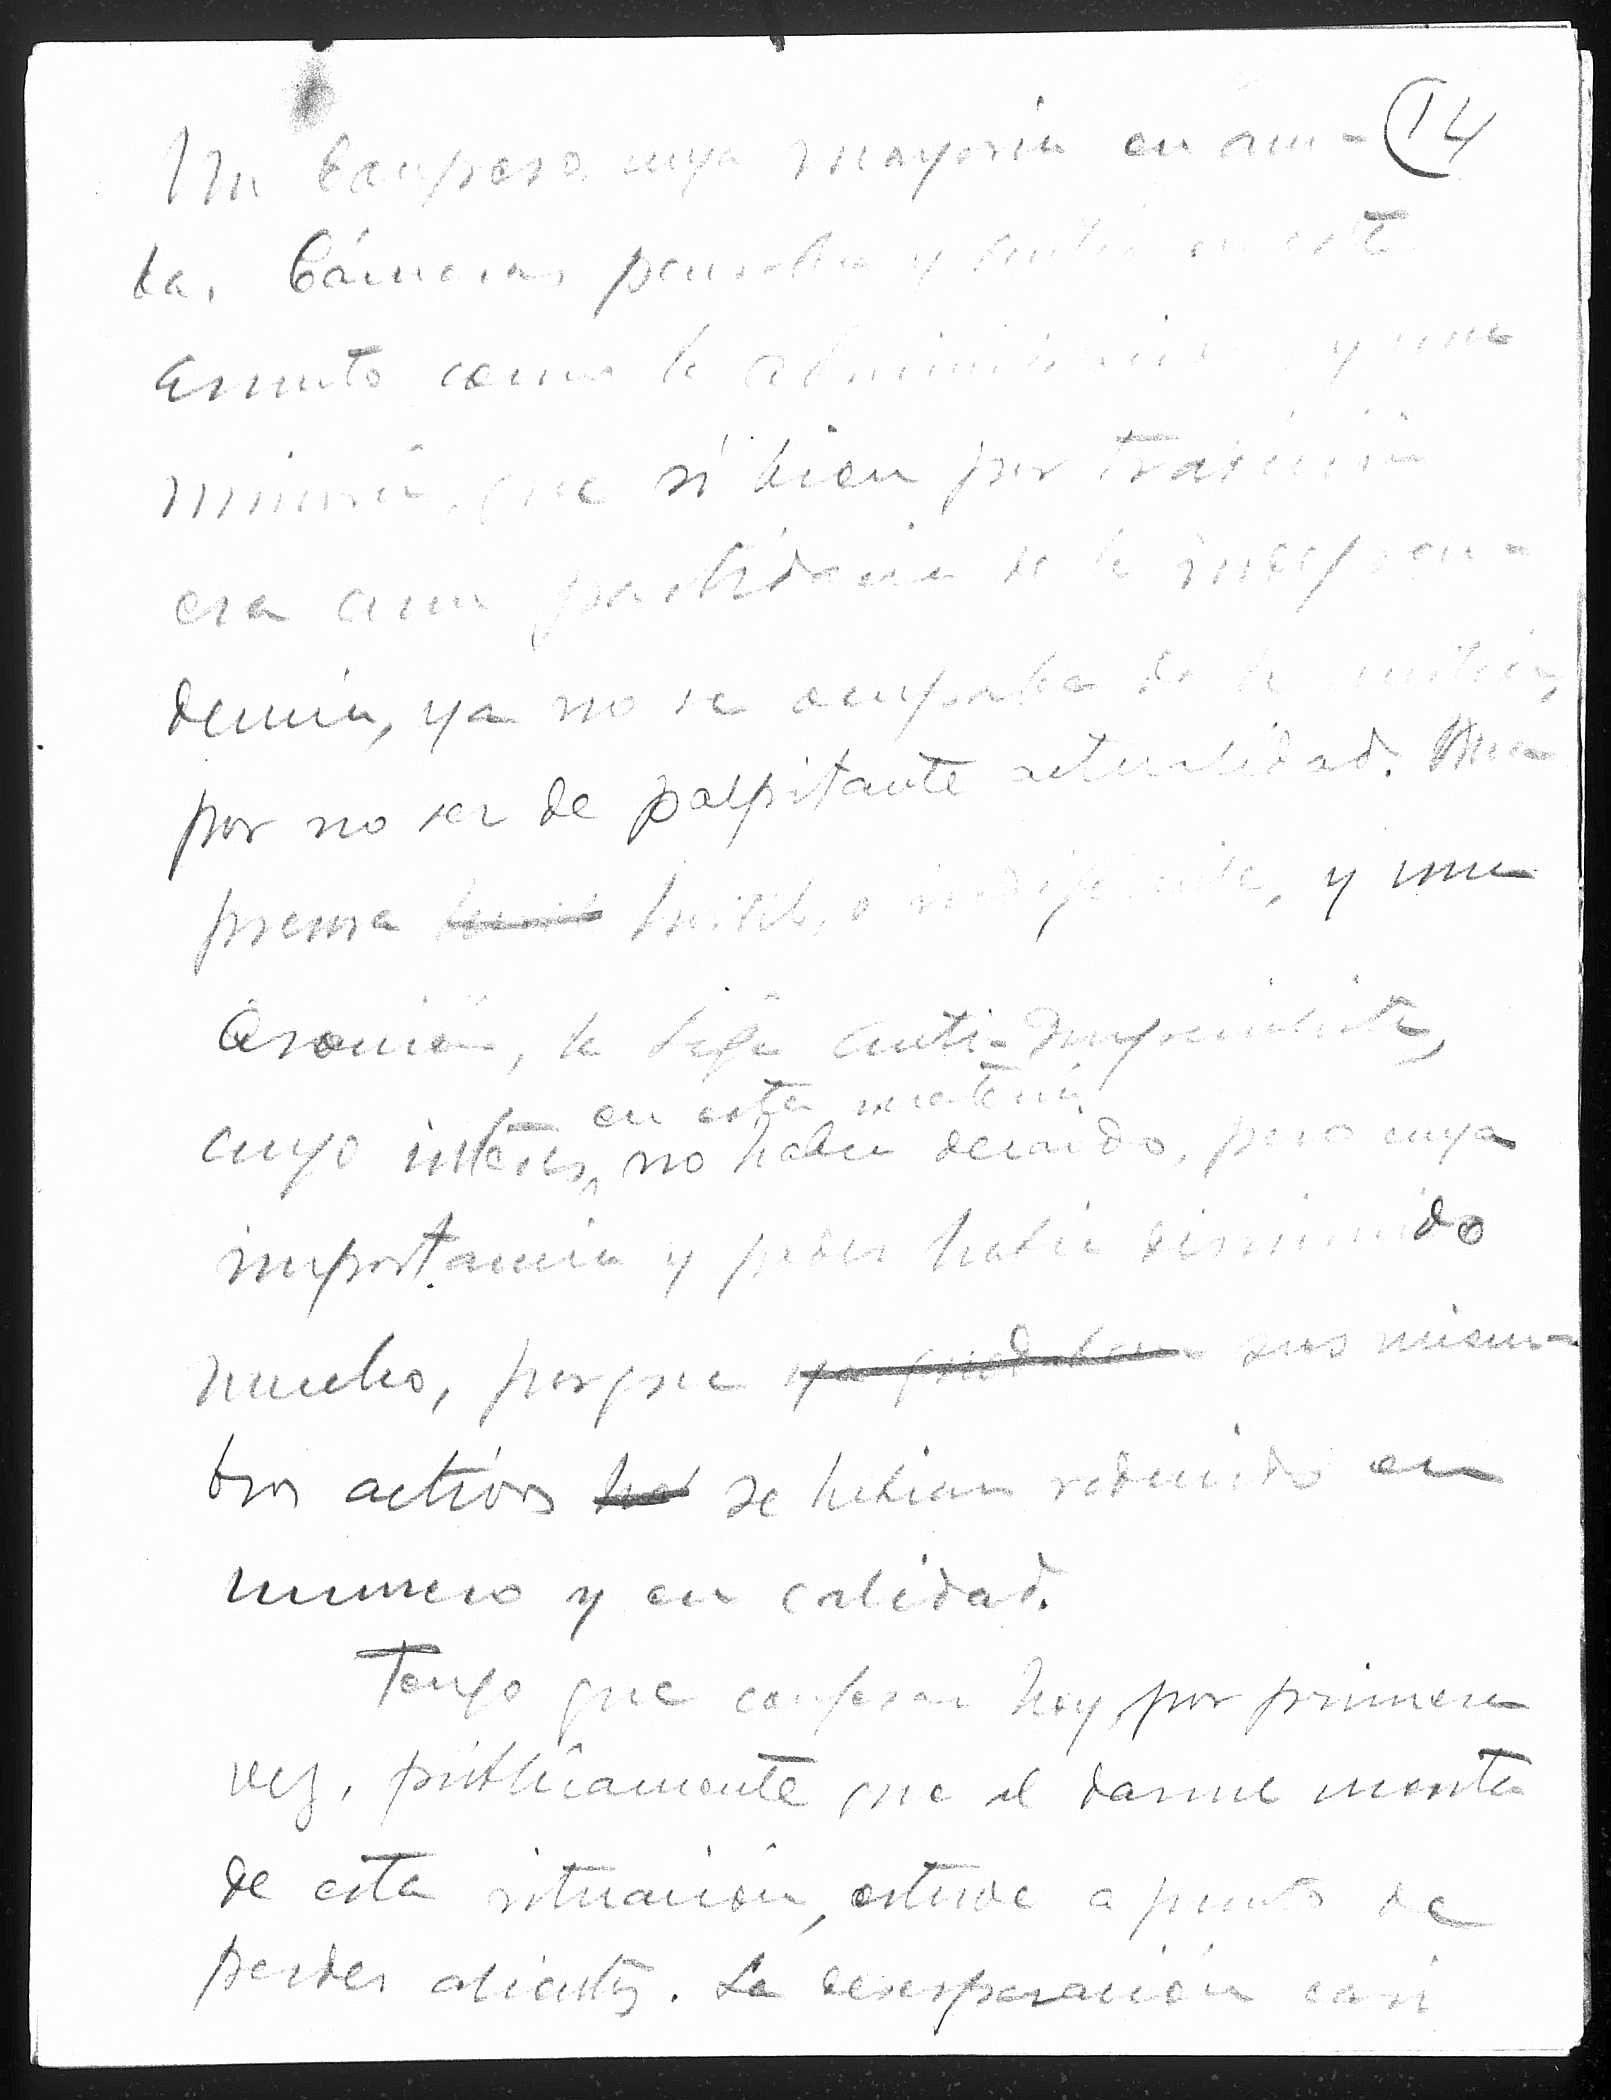 14
Un Congreso cuya mayoría en am-
bas Cámaras pensaba y sentía en este
asunto como la administración y una
minoría, que si bien por tradición
era aun partidaria de la indepen-
dencia, ya no se ocupaba de la
por no ser de palpitante actualidad. Una
prensa hostil, o indiferente, y una
asociación, la Liga Anti-Imperialista,
en esta materia
cuyo interés no había decaído, pero cuya
importancia y poder había disminuido
mucho, porque ya quedaban sus miem-
bros activos se habían reducido en
numero y en calidad.
Tengo que confesar hoy, por primera
vez, públicamente que al darme cuenta
de esta situación, estuve a punto de
perder alientos. La desesperación casi